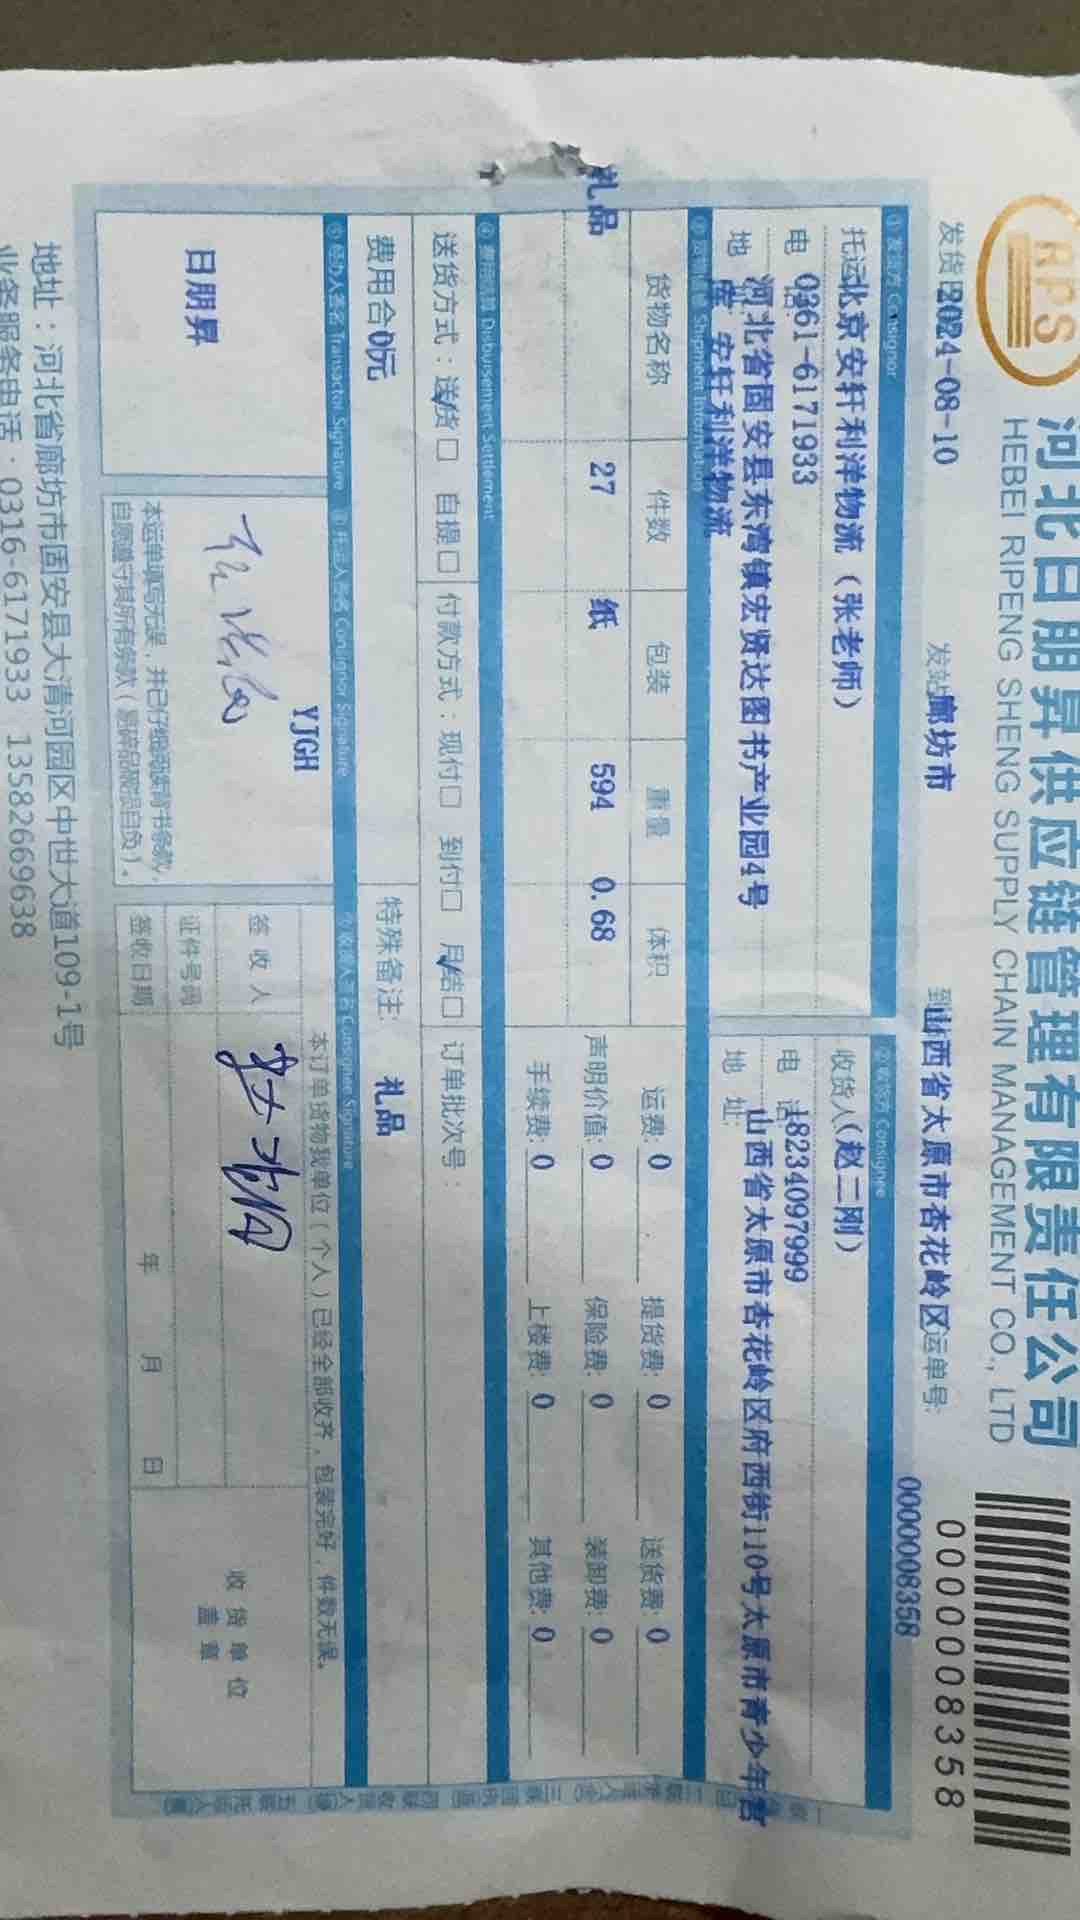 RPS
河北日朋昇供应链管理有限责任公司
HEBEI RIPENG SHENG SUPPLY CHAIN MANAGEMENT CO., LTD
0000008358
0000008358
发货日 2024-08-10 发站 廊坊市 到 山西省太原市杏花岭区 运单号:
①发货方 Consignor
②收货方 Consignee
托运 北京安轩利洋物流（张老师）
收货人（赵二刚）
电 0361-6171933
电话 18234097999
地 河北省固安县东湾镇宏贤达图书产业园4号
安轩利洋物流
地址: 山西省太原市杏花岭区府西街110号太原市青少年宫
Shipment Information
货物名称 件数 包装 重量 体积
礼品 27 纸 594 0.68
运费: 0 提货费: 0 送货费: 0
声明价值: 0 保险费: 0 装卸费: 0
手续费: 0 上楼费: 0 其他费: 0
Disbursement Settlement
送货方式：送货□ 自提□ 付款方式：现付□ 到付□ 月结□ 订单批次号：
费用合 0元 特殊备注: 礼品
⑤经办人签名 Transactor Signature ⑥托运人签名 Consignor Signature ⑦收货人签名 Consignee Signature
日朋昇
YJGH
本运单填写无误，并已仔细阅读背书条款，
自愿遵守其所有条款（易碎品破损自负）。
本订单货物我单位（个人）已经全部收齐，包装完好，件数无误。
签收人
证件号码
签收日期 年 月 日
收货单位
盖章
地址：河北省廊坊市固安县大清河园区中世大道109-1号
业务服务电话：0316-6171933 13582669638